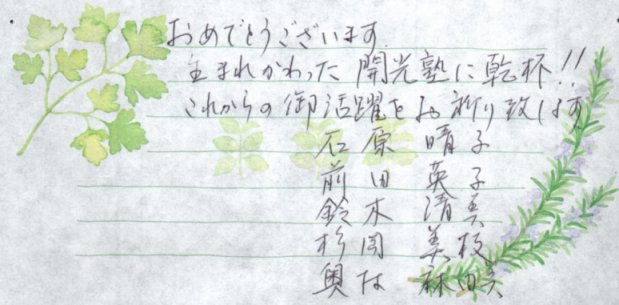 おめでとうございます
生まれかわった 開光塾に乾杯!!
これからの御活躍をお祈り致します
石原 晴子
前田 英子
鈴木 清美
杉岡 美枝
奥村